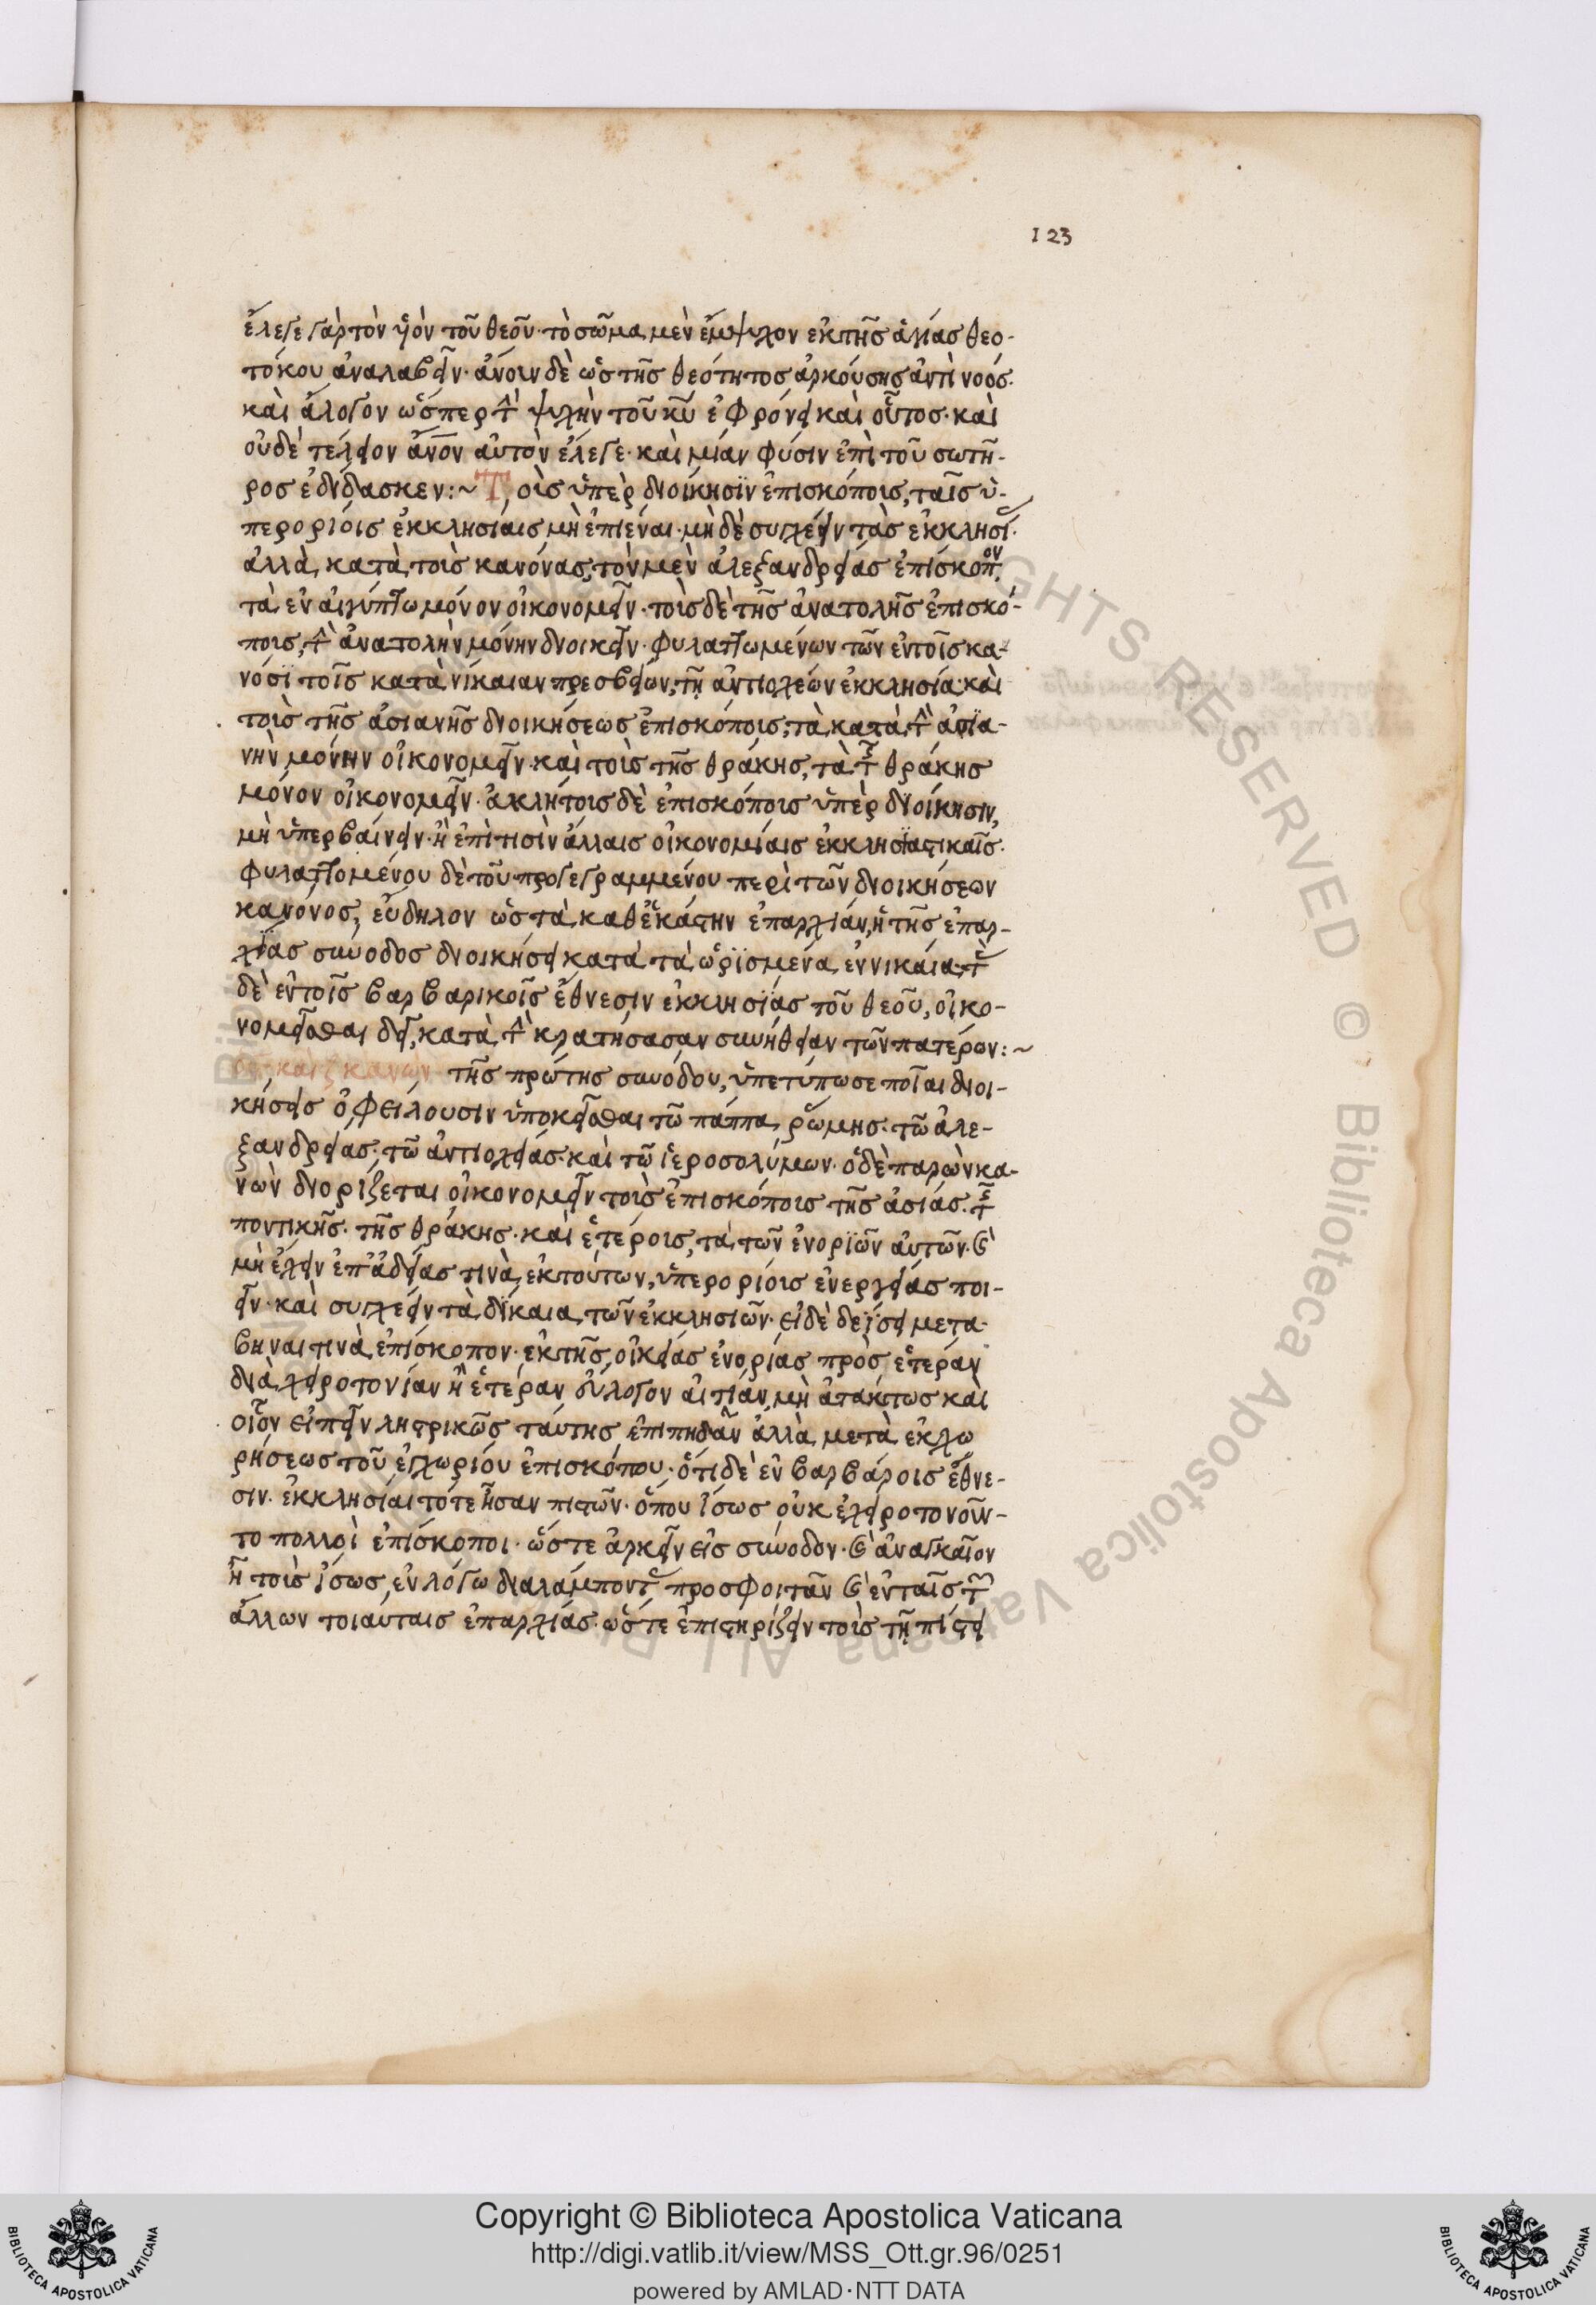 123
ἔλεγε γὰρ τὸν ὑὸν τοῦ θεοῦ· τὸ σῶμα μὲν ἔμψυχον ἐκ τῆς ἁγίας θεο-
τόκου ἀναλαβεῖν· ἄνουν δὲ ὡς τῆς θεότητος ἀρκούσης ἀντὶ νοός·
καὶ ἄλογον ὥσπερ τὴν ψυχὴν τοῦ κυ ἐφρόνει καὶ οὗτος· καὶ
οὐδὲ τέλειον ἄνον αὐτὸν ἔλεγε· καὶ μίαν φύσιν ἐπὶ τοῦ σωτῆ-
ρος ἐδίδασκεν:~ Τοῖς ὑπὲρ διοίκησϊν ἐπισκόποις, ταῖς ὑ-
περορίοις ἐκκλησίαις μὴ ἐπιέναι· μὴ δὲ συγχέειν τὰς ἐκκλησί·
ἀλλὰ κατὰ τοὺς κανόνας, τὸν μὲν ἀλεξανδρείας ἐπίσκοπον,
τὰ ἐν αἰγύπτω μόνον οἰκονομεῖν· τοῖς δὲ τῆς ἀνατολῆς ἐπισκό-
ποις, τὴν ἀνατολὴν μόνην διοικεῖν· φυλαττωμένων τῶν ἐν τοῖς κα-
νόσϊ τοῖς κατὰ νίκαιαν πρεσβείων, τῆ ἀντιοχέων ἐκκλησία· καὶ
τοῖς τῆς ἀσιανῆς διοικήσεως ἐπισκόποις, τὰ κατὰ τὴν ἀσϊα-
νὴν μόνην οἰκονομεῖν· καὶ τοῖς τῆς θράκης, τὰ τῆς θράκης
μόνον οἰκονομεῖν· ἀκλήτοις δὲ ἐπισκόποις ὑπὲρ διοίκησιν,
μὴ ὑπερβαίνειν· ἢ ἐπὶ τισὶν ἄλλαις οἰκονομίαις ἐκκλησϊαστικαῖς·
φυλαττομένου δὲ τοῦ προγεγραμμένου περὶ τῶν διοικήσεων
κανόνος, εὔδηλον ὡς τὰ καθ' ἑκάστην ἐπαρχίαν, ἡ τῆς ἐπαρ-
χίας σύνοδος διοικήσει κατὰ τὰ ὡρϊσμένα ἐν νικαία· τὰς
δὲ ἐν τοῖς βαρβαρικοῖς ἔθνεσιν ἐκκλησϊας τοῦ θεοῦ, οἰκο-
νομεῖσθαι δεῖ, κατὰ τὴν κρατήσασαν συνήθειαν τῶν πατέρων:~
ὁ ϛ καὶ ζ κανὼν τῆς πρώτης συνοδου, ὑπετύπωσε ποῖαι διοι-
κήσεις ὀφείλουσιν ὑποκεῖσθαι τῶ πάππα ῥώμης· τῶ ἀλε-
ξανδρείας· τῶ ἀντιοχείας· καὶ τῶ ἱεροσολύμων· ὁ δὲ παρὼν κα-
νὼν διορίζεται οἰκονομεῖν τοῖς ἐπισκόποις τῆς ἀσίας· τῆς
ποντικῆς· τῆς θράκης· καὶ ἑτέροις, τὰ τῶν ἐνορϊῶν αὐτῶν· καὶ
μὴ ἔχειν ἐπ' ἀδείας τινὰ ἐκ τούτων, ὑπερορίοις ἐνεργείας ποι-
εῖν· καὶ συγχέειν τὰ δίκαια τῶν ἐκκλησιῶν· εἰ δὲ δεήσει μετα-
βηναι τινὰ ἐπίσκοπον· ἐκ τῆς οἰκείας ἐνορίας πρὸς ἑτεράν
διὰ χειροτονίαν ἢ ἑτέραν εὔλογον αἰτίαν, μὴ ἀτάκτως καὶ
οἷον εἰπεῖν ληστρικῶς ταύτης ἐπιπηδᾶν ἀλλὰ μετὰ ἐκχω
ρήσεως τοῦ ἐγχωρίου ἐπισκόπου· ὅτι δὲ ἐν βαρβάροις ἔθνε-
σιν· ἐκκλησίαι τότε ἦσαν πιστῶν· ὅπου ἴσως οὐκ ἐχειροτονοῦν-
το πολλοὶ ἐπίσκοποι· ὥστε ἀρκεῖν εἰς σύνοδον· καὶ ἀναγκαῖον
ἦν τοῖς ἴσως ἐν λόγω διαλάμποντας προσφοιτᾶν καὶ ἐν ταῖς τῶν
ἄλλων τοιαύταις ἐπαρχίας· ὥστε ἐπιστηρίζειν τοῖς τῆ πίστει
Copyright © Biblioteca Apostolica Vaticana
http://digi.vatlib.it/view/MSS_Ott.gr.96/0251
powered by AMLAD·NTT DATA